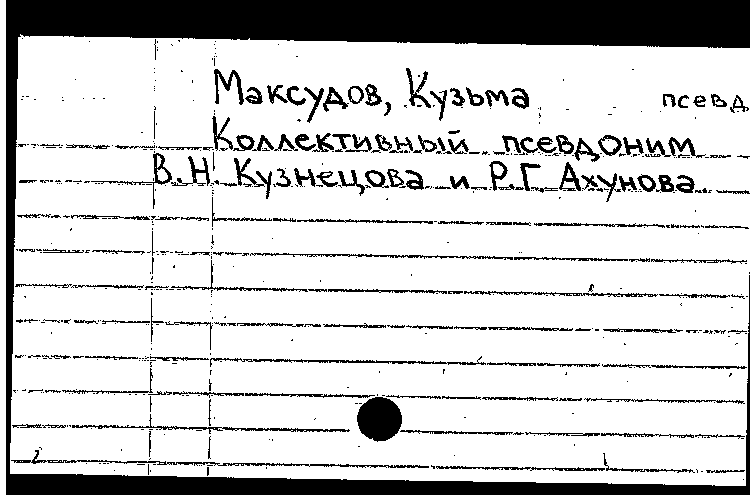 Максудов, Кузьма псевд
Коллективный псевдоним
В.Н. Кузнецова и Р.Г. Ахунова.